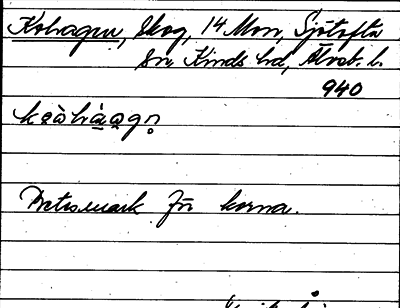 Kohagen, Skog, 14 Mon, Sjötofta
sn, Kinds hd, Älvsb. l.
940
Betesmark för korna.